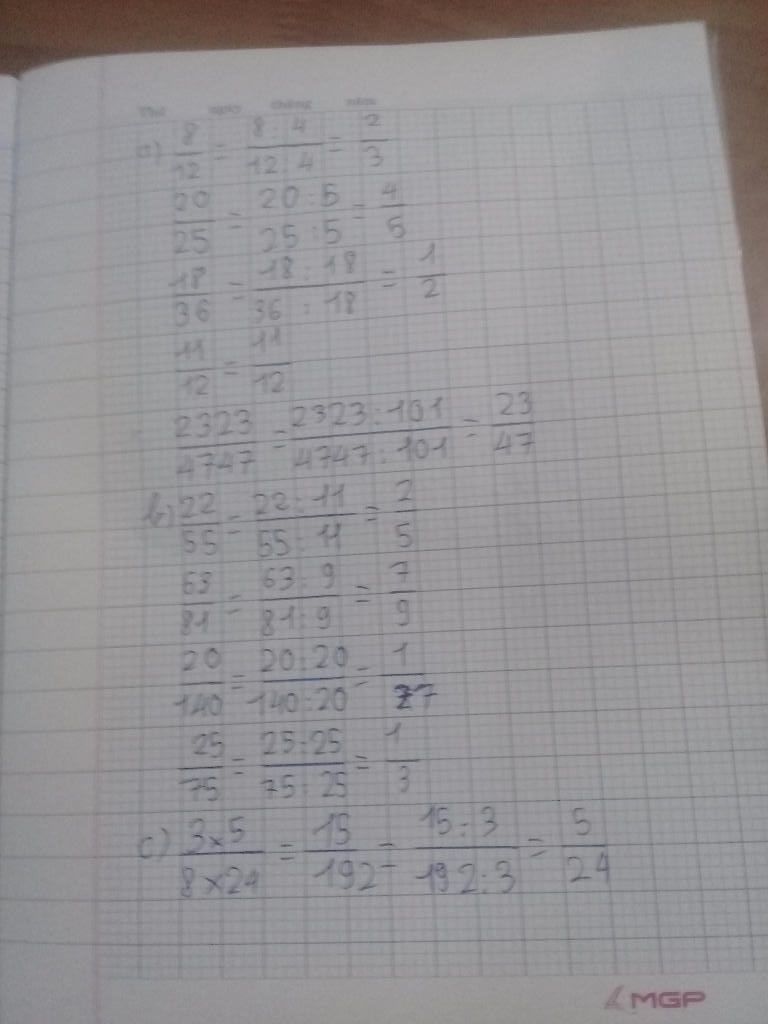 Thứ ngày tháng năm
a) 8/12 = 8 : 4/12 : 4 = 2/3
20/25 = 20 : 5/25 : 5 = 4/5
18/36 = 18 : 18/36 : 18 = 1/2
11/12 = 11/12
2323/4747 = 2323 : 101/4747 : 101 = 23/47
b) 22/55 = 22 : 11/55 : 11 = 2/5
63/81 = 63 : 9/81 : 9 = 7/9
20/140 = 20 : 20/140 : 20 = 1/7
25/75 = 25 : 25/75 : 25 = 1/3
c) 3 x 5/8 x 24 = 15/192 = 15 : 3/192 : 3 = 5/24
MGP